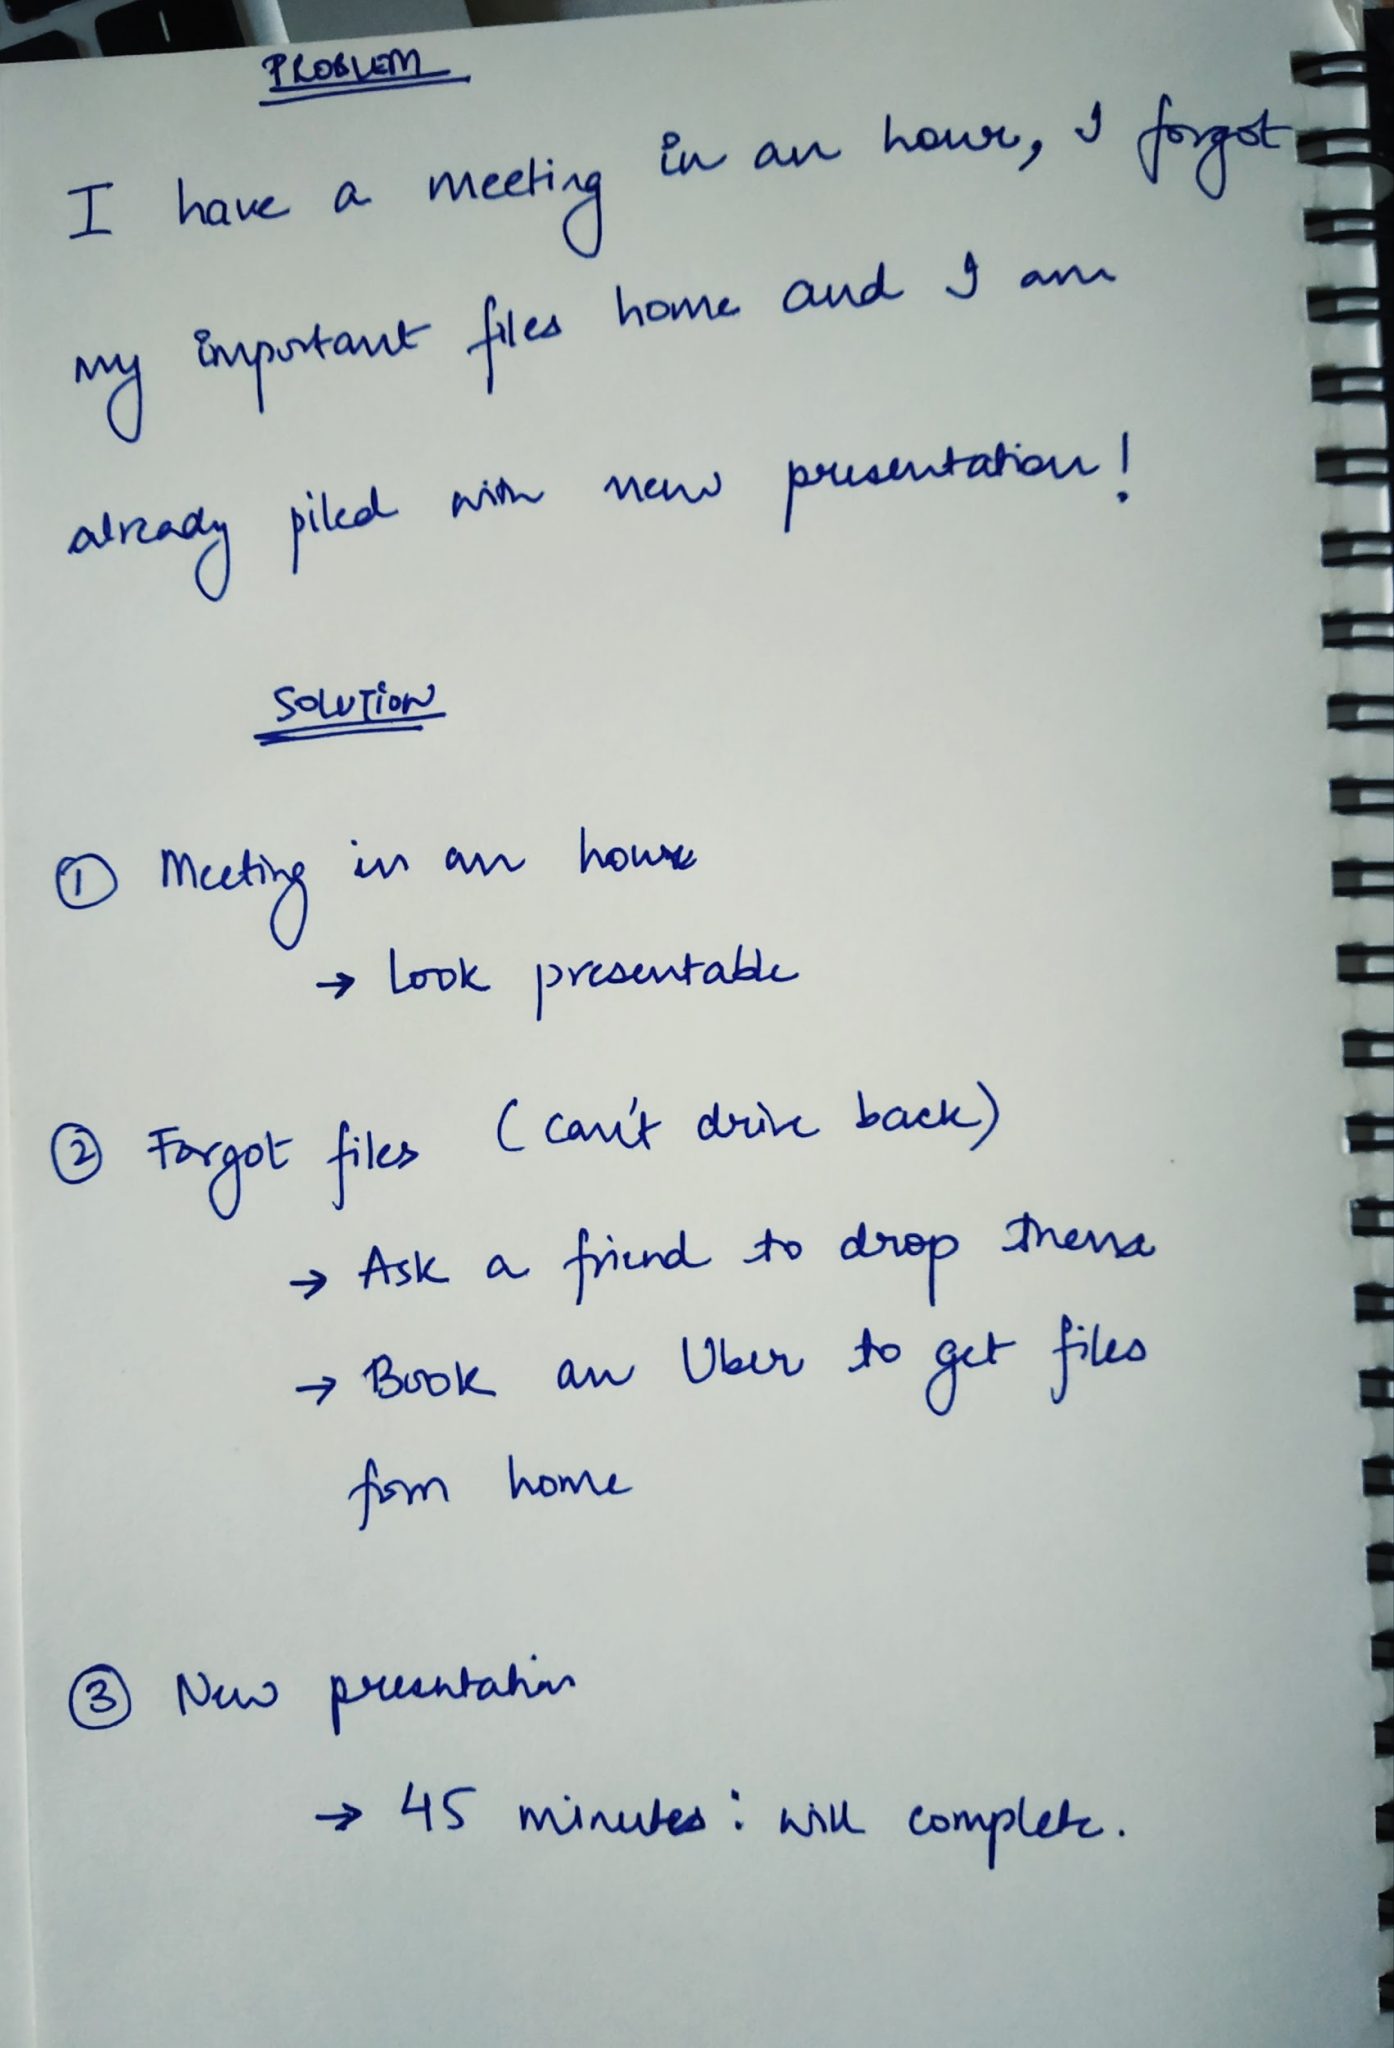 PROBLEM
I have a meeting in an hour, I forgot
my important files home and I am
already piled with new presentation!
SOLUTION
① Meeting in an hour
→ Look presentable
② Forgot files (can't drive back)
→ Ask a friend to drop them
→ Book an Uber to get files
from home
③ New presentation
→ 45 minutes: will complete.